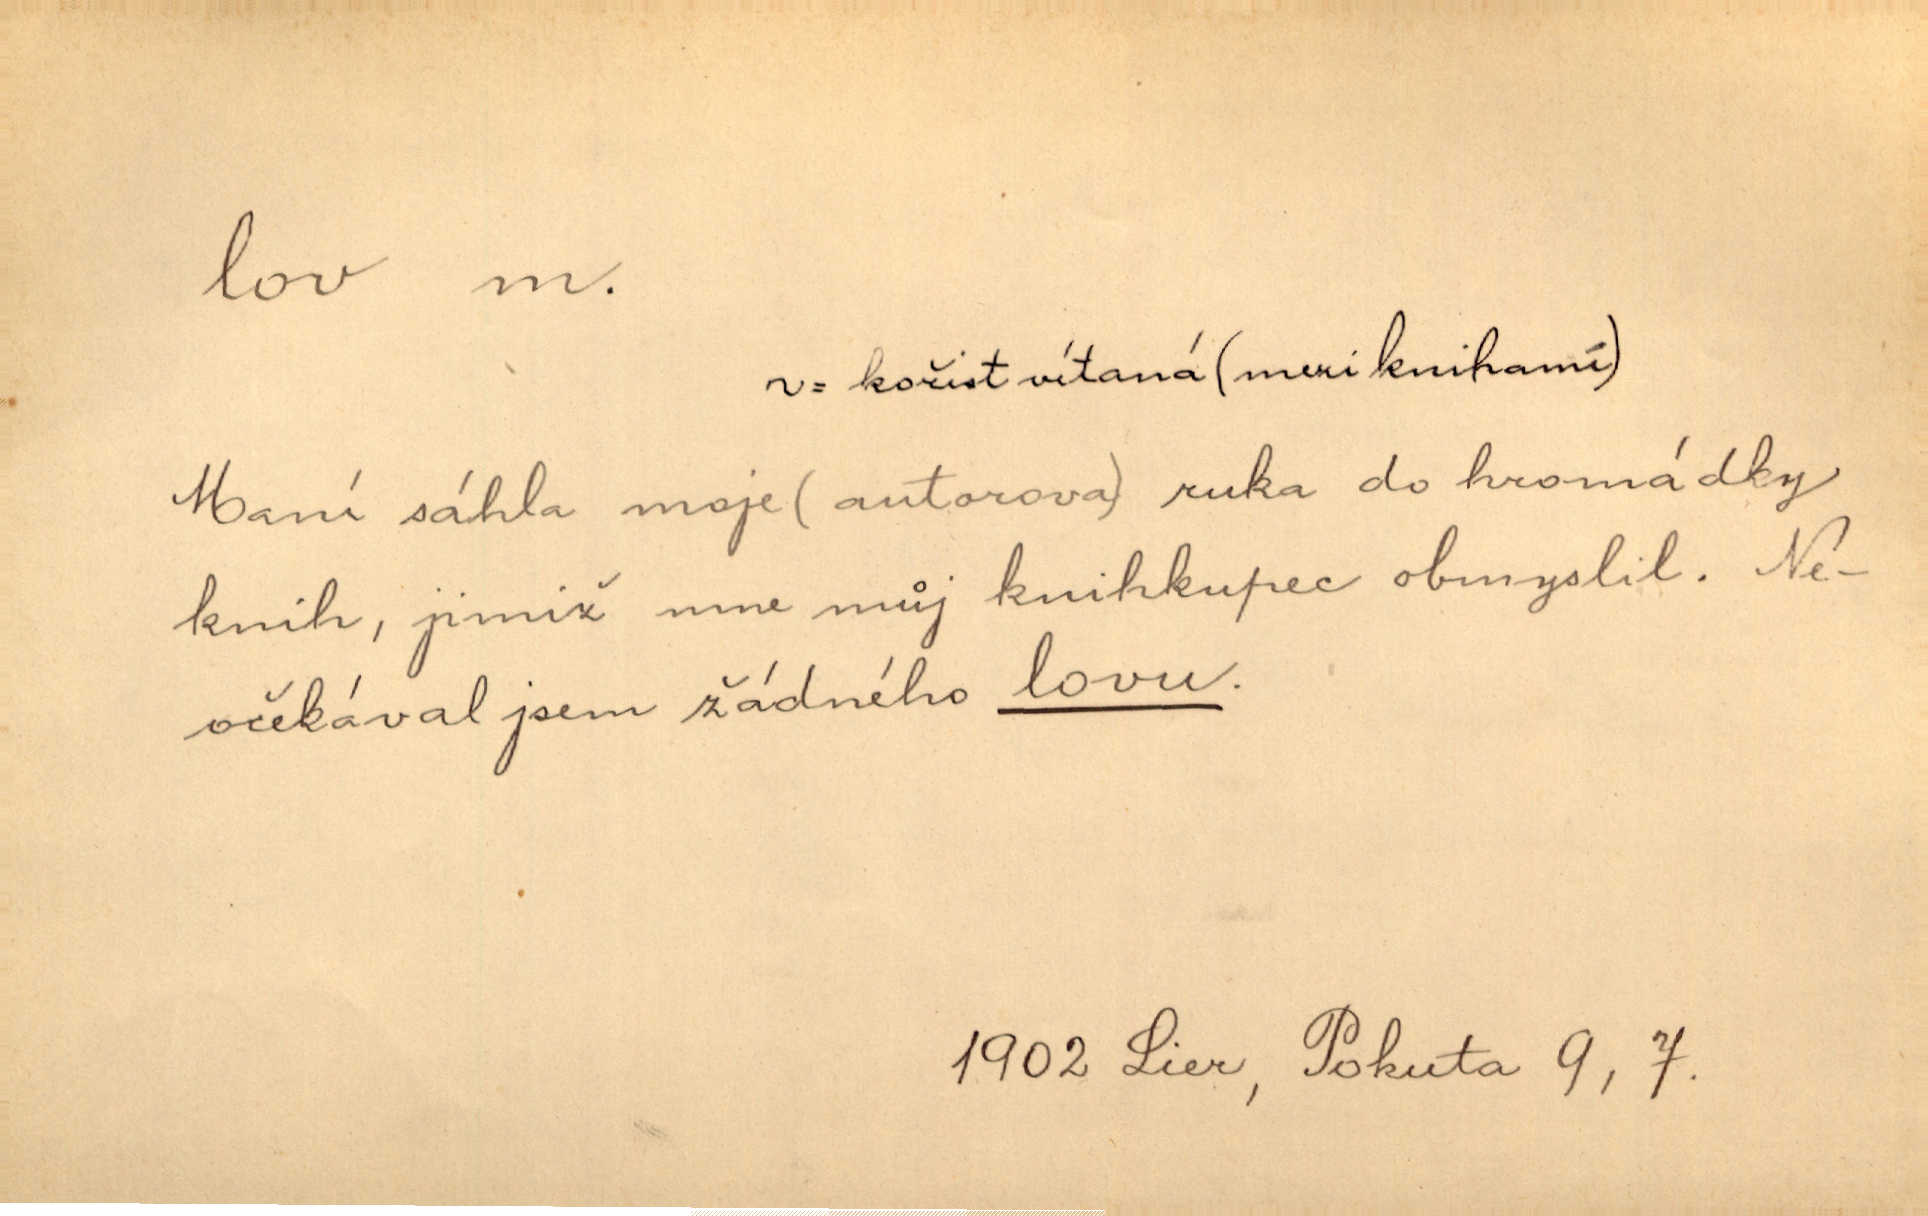 lov m.
v = kořist vítaná (mezi knihami)
Maní sáhla moje (autorova) ruka do hromádky
knih, jimiž mne můj knihkupec obmyslil. Ne-
očekával jsem žádného lovu.
1902 Lier, Pokuta 9, 7.